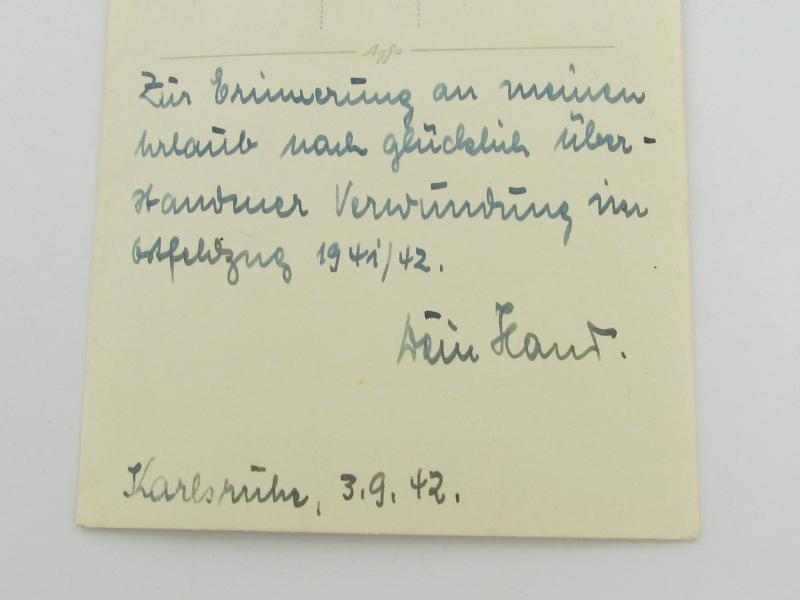 Agfa
Zur Erinnerung an meinen
Urlaub nach glücklich über-
standner Verwundung im
Ostfeldzug 1941/42.
Dein
Karlsruhe, 3.9.42.